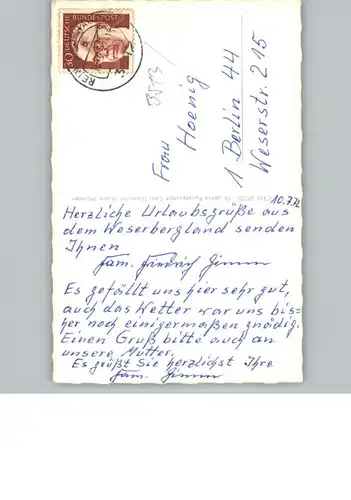 30 DEUTSCHE BUNDESPOST
Frau
Hoenig
1 Berlin 44
Weserstr. 215
10.7.72
Herzliche Urlaubsgrüße aus
dem Weserbergland senden
Ihnen
Fam.
Es gefällt uns hier sehr gut,
auch das Wetter war uns bis=
her noch einigermaßen gnädig.
Einen Gruß bitte auch an
unsere Mutter.
Es grüßt Sie herzlichst Ihre
Fam.